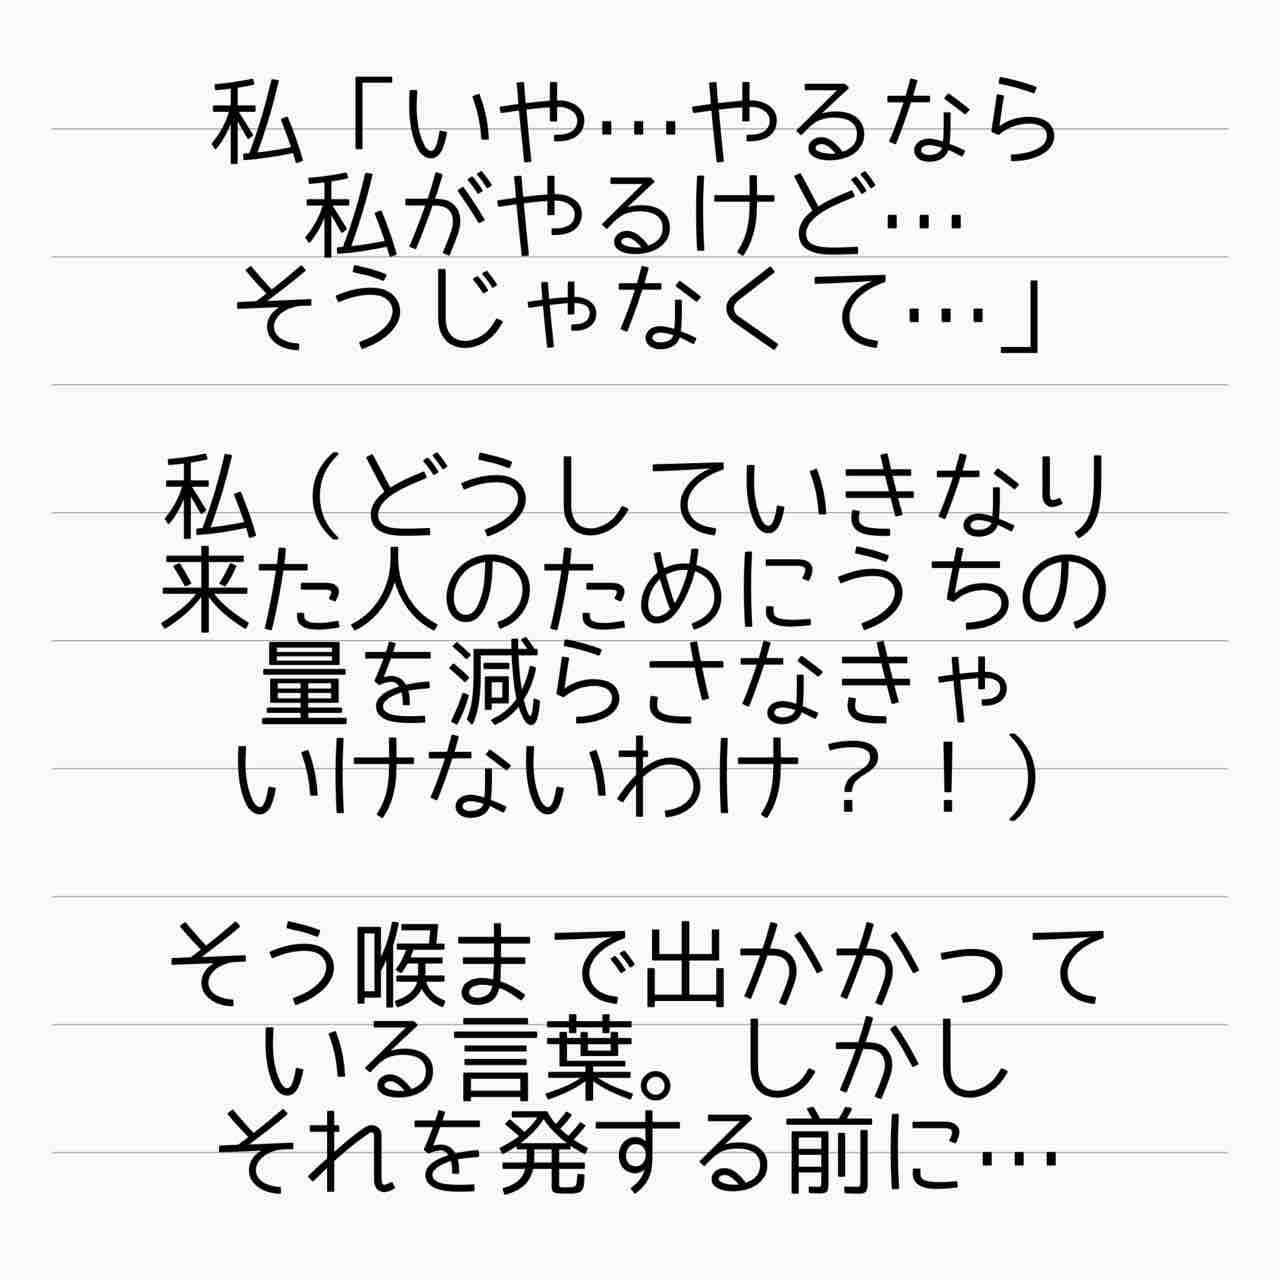 私「いや…やるなら
私がやるけど…
そうじゃなくて…」
私（どうしていきなり
来た人のためにうちの
量を減らさなきゃ
いけないわけ？！）
そう喉まで出かかって
いる言葉。しかし
それを発する前に…